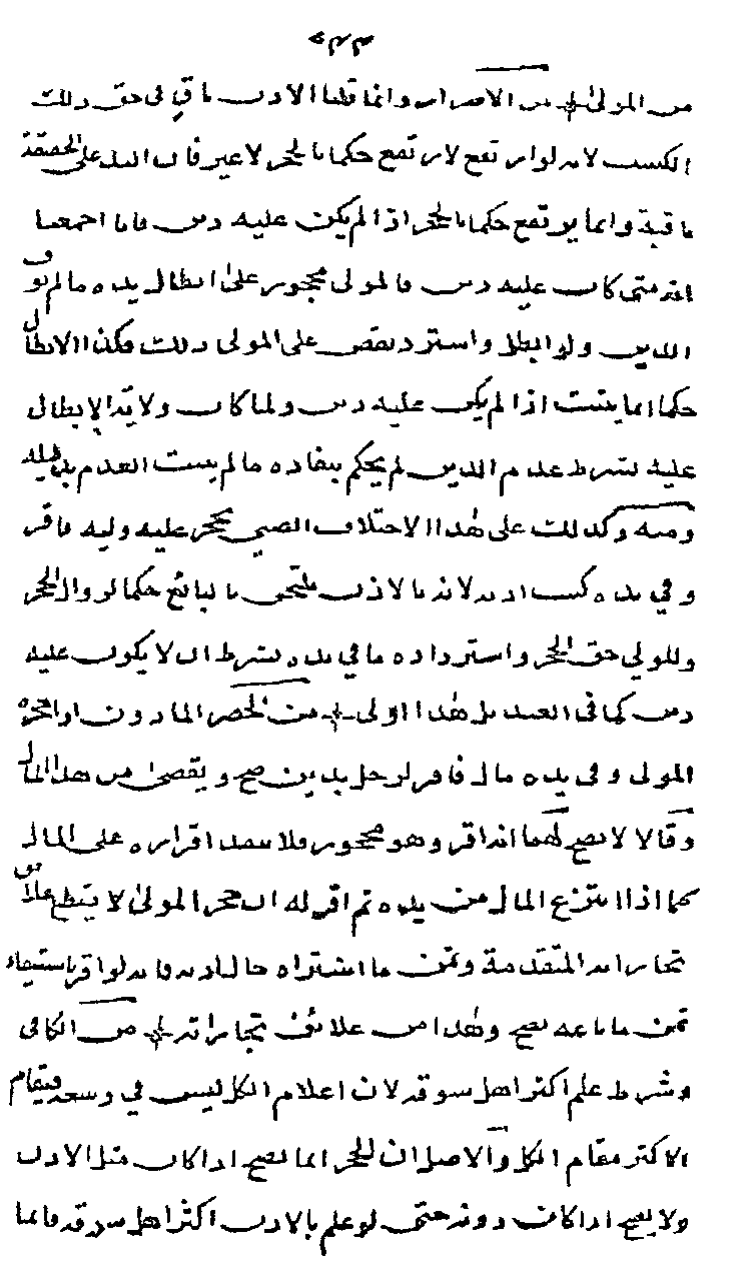 من المولى من الاصرار وانما قلنا الاذن باق في حق ذلك
الكسب لانه لو ارتفع لارتفع حكما بالحجر لا غير فان اليد على الحقيقة
باقية وانما يرتفع حكما بالحجر اذا لم يكن عليه دين فانا اجمعنا
انه متى كان عليه دين فالمولى محجور على ابطال يده ما لم يوف
الدين ولو ابطل واسترد ينقض على المولى ذلك فكذا الابطال
حكما انما يثبت اذا لم يكن عليه دين ولما كان ولاية الابطال
عليه بشرط عدم الدين لم يحكم بنفاده ما لم يثبت العدم
ومنه وكذلك على هذا الاختلاف الصبي يحجر عليه وليه فاقر
وفي يده كسب اذنه لانه بالاذن ملتحق بالبالغ حكما لزوال الحجر
وللولي حق الحجر واسترداده ما في يده بشرط ان لا يكون عليه
دين كما في العبد بل هذا اولى من الحصر الماذون اذا حجره
المولى وفي يده مال فاقر لرجل بدين صح ويقضى من هذا المال
وقالا لا يصح لهما انه اقر وهو محجور فلا ينفذ اقراره على المال
كما اذا انتزع المال من يده ثم اقر له ان حجر المولى لا يقطع علائق
تجاراته المتقدمة وثمن ما اشتراه حال اذنه فانه لو اقر باستيفاء
ثمن ما باعه يصح وهذا من علائق تجاراته من الكافي
وشرط علم اكثر اهل سوقه لان اعلام الكل ليس في وسعه فيقام
الاكثر مقام الكل والاصل ان الحجر انما يصح اذا كان مثل الاذن
ولا يصح اذا كان دونه حتى لو علم بالاذن اكثر اهل سوقه فانما